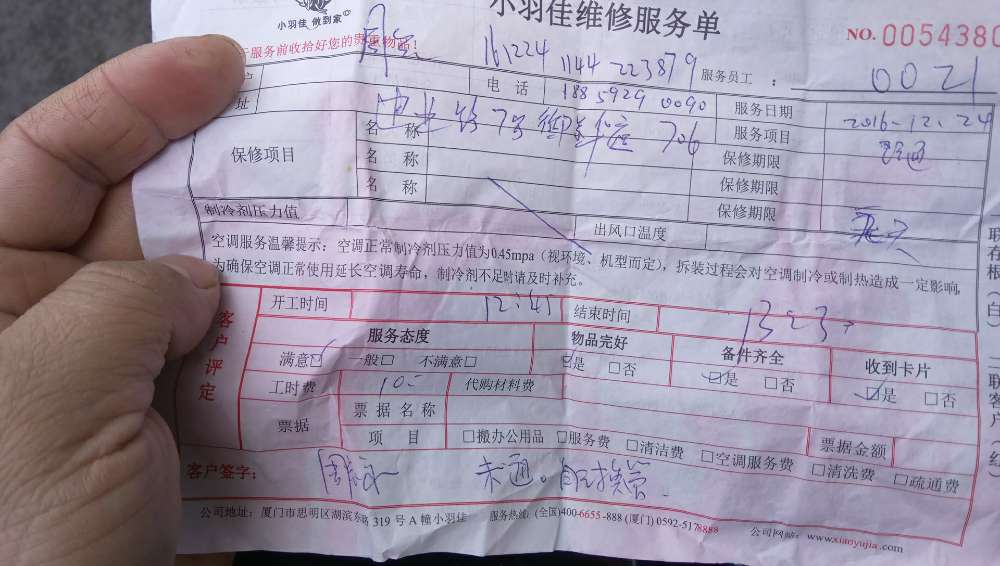 小羽佳 做到家
小羽佳维修服务单
NO. 0054380
于服务前收拾好您的贵重物品!
161224 1144 223879 服务员工: 0021
户 电话 1885929 0090 服务日期 2016-12.24
址 7号 706 服务项目
保修项目 名称 保修期限
名称 保修期限
名称 保修期限
制冷剂压力值 出风口温度
空调服务温馨提示: 空调正常制冷剂压力值为0.45mpa(视环境、机型而定), 拆装过程会对空调制冷或制热造成一定影响,
为确保空调正常使用延长空调寿命, 制冷剂不足时请及时补充。
客户评定
开工时间 12:45 结束时间
服务态度 物品完好 备件齐全 收到卡片
满意☑ 一般□ 不满意□ ☑是 □否 ☑是 □否 ☑是 □否
工时费 代购材料费
票据 票据名称 票据金额
项目 □搬办公用品 □服务费 □清洁费 □空调服务费 □清洗费 □疏通费
客户签字: 未通。
公司地址: 厦门市思明区湖滨东路 319 号 A 幢小羽佳 服务热线: (全国)400-6655-888 (厦门) 0592-5178888 公司网站: www.xiaoyujia.com